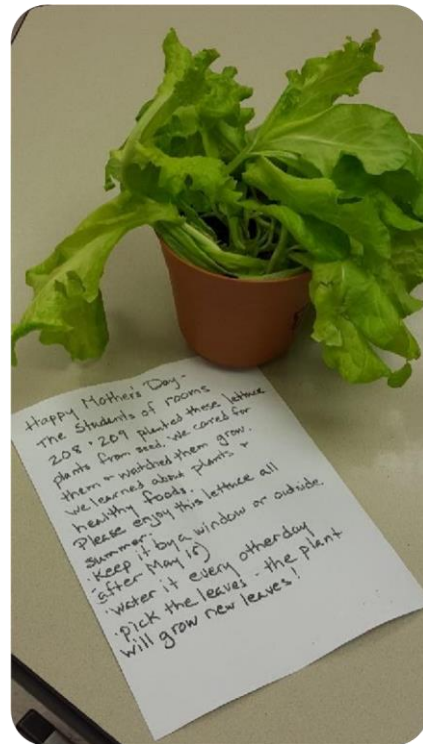 Happy Mother's Day -
The Students of rooms
208 + 209 planted these lettuce
plants from seed. We cared for
them + watched them grow.
We learned about plants +
healthy foods.
Please enjoy this lettuce all
summer.
• Keep it by a window or outside
(after May 15)
• water it every other day
• pick the leaves - the plant
will grow new leaves!